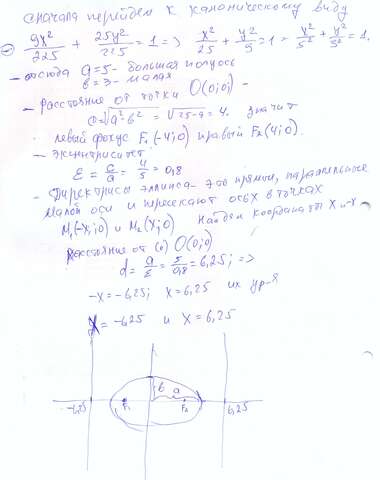 сначала перейдём к каноническому виду
9x²/225 + 25y²/225 = 1 => x²/25 + y²/9 = 1 = x²/5² + y²/3² = 1.
– отсюда a=5 - большая полуось
в=3 - малая
– расстояние от точки O(0;0) -
c=√a²-b² = √25-9 = 4. значит
левый фокус F₁(-4;0) правый F₂(4;0).
– эксцентриситет
ε = c/a = 4/5 = 0,8
– Директрисы эллипса - это прямые, параллельные
малой оси и пересекают ось X в точках
M₁(-X;0) и M₂(X;0) Найдём координаты X и -X
расстояние от (·) O(0;0)
d = a/ε = 5/0,8 = 6,25; =>
-x = -6,25; x = 6,25 их ур-я
X = -6,25 и X = 6,25
в a
-6,25 F₁ F₂ 6,25